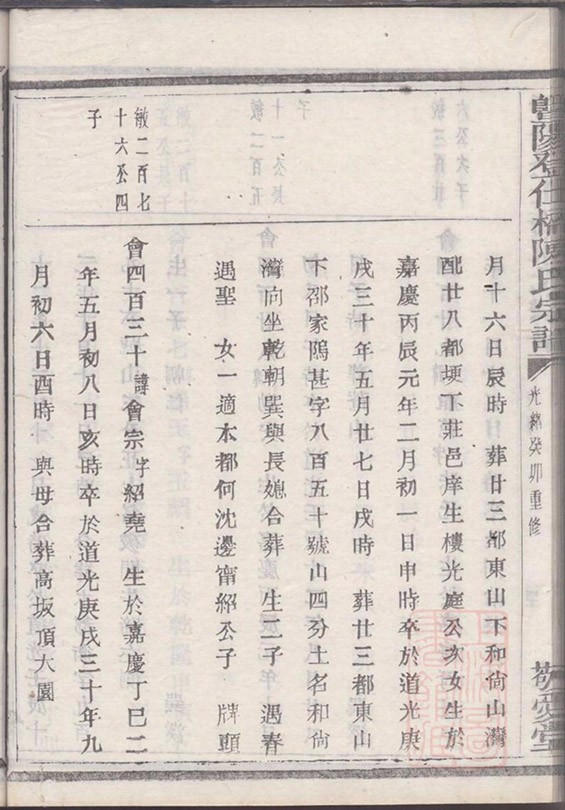 暨陽孝仁橋陳氏宗譜
光緒癸卯重修
敬愛堂
月十六日辰時 葬廿三都東山下和尙山灣
配廿八都埂下莊邑庠生樓光庭公亥女生於
嘉慶丙辰元年二月初一日申時卒於道光庚
戌三十年五月廿七日戌時 葬廿三都東山
下邵家隖甚字八百五十號山四分土名和尙
灣向坐乾朝巽與長媳合葬 生二子 遇春
遇聖 女一適本都何沈邊甯紹公子 牌頭
敏二百七
十六公四
子
會四百三十 諱會宗 字紹堯 生於嘉慶丁巳二
年五月初八日亥時卒於道光庚戌三十年九
月初六日酉時 與母合葬高坂頂大園